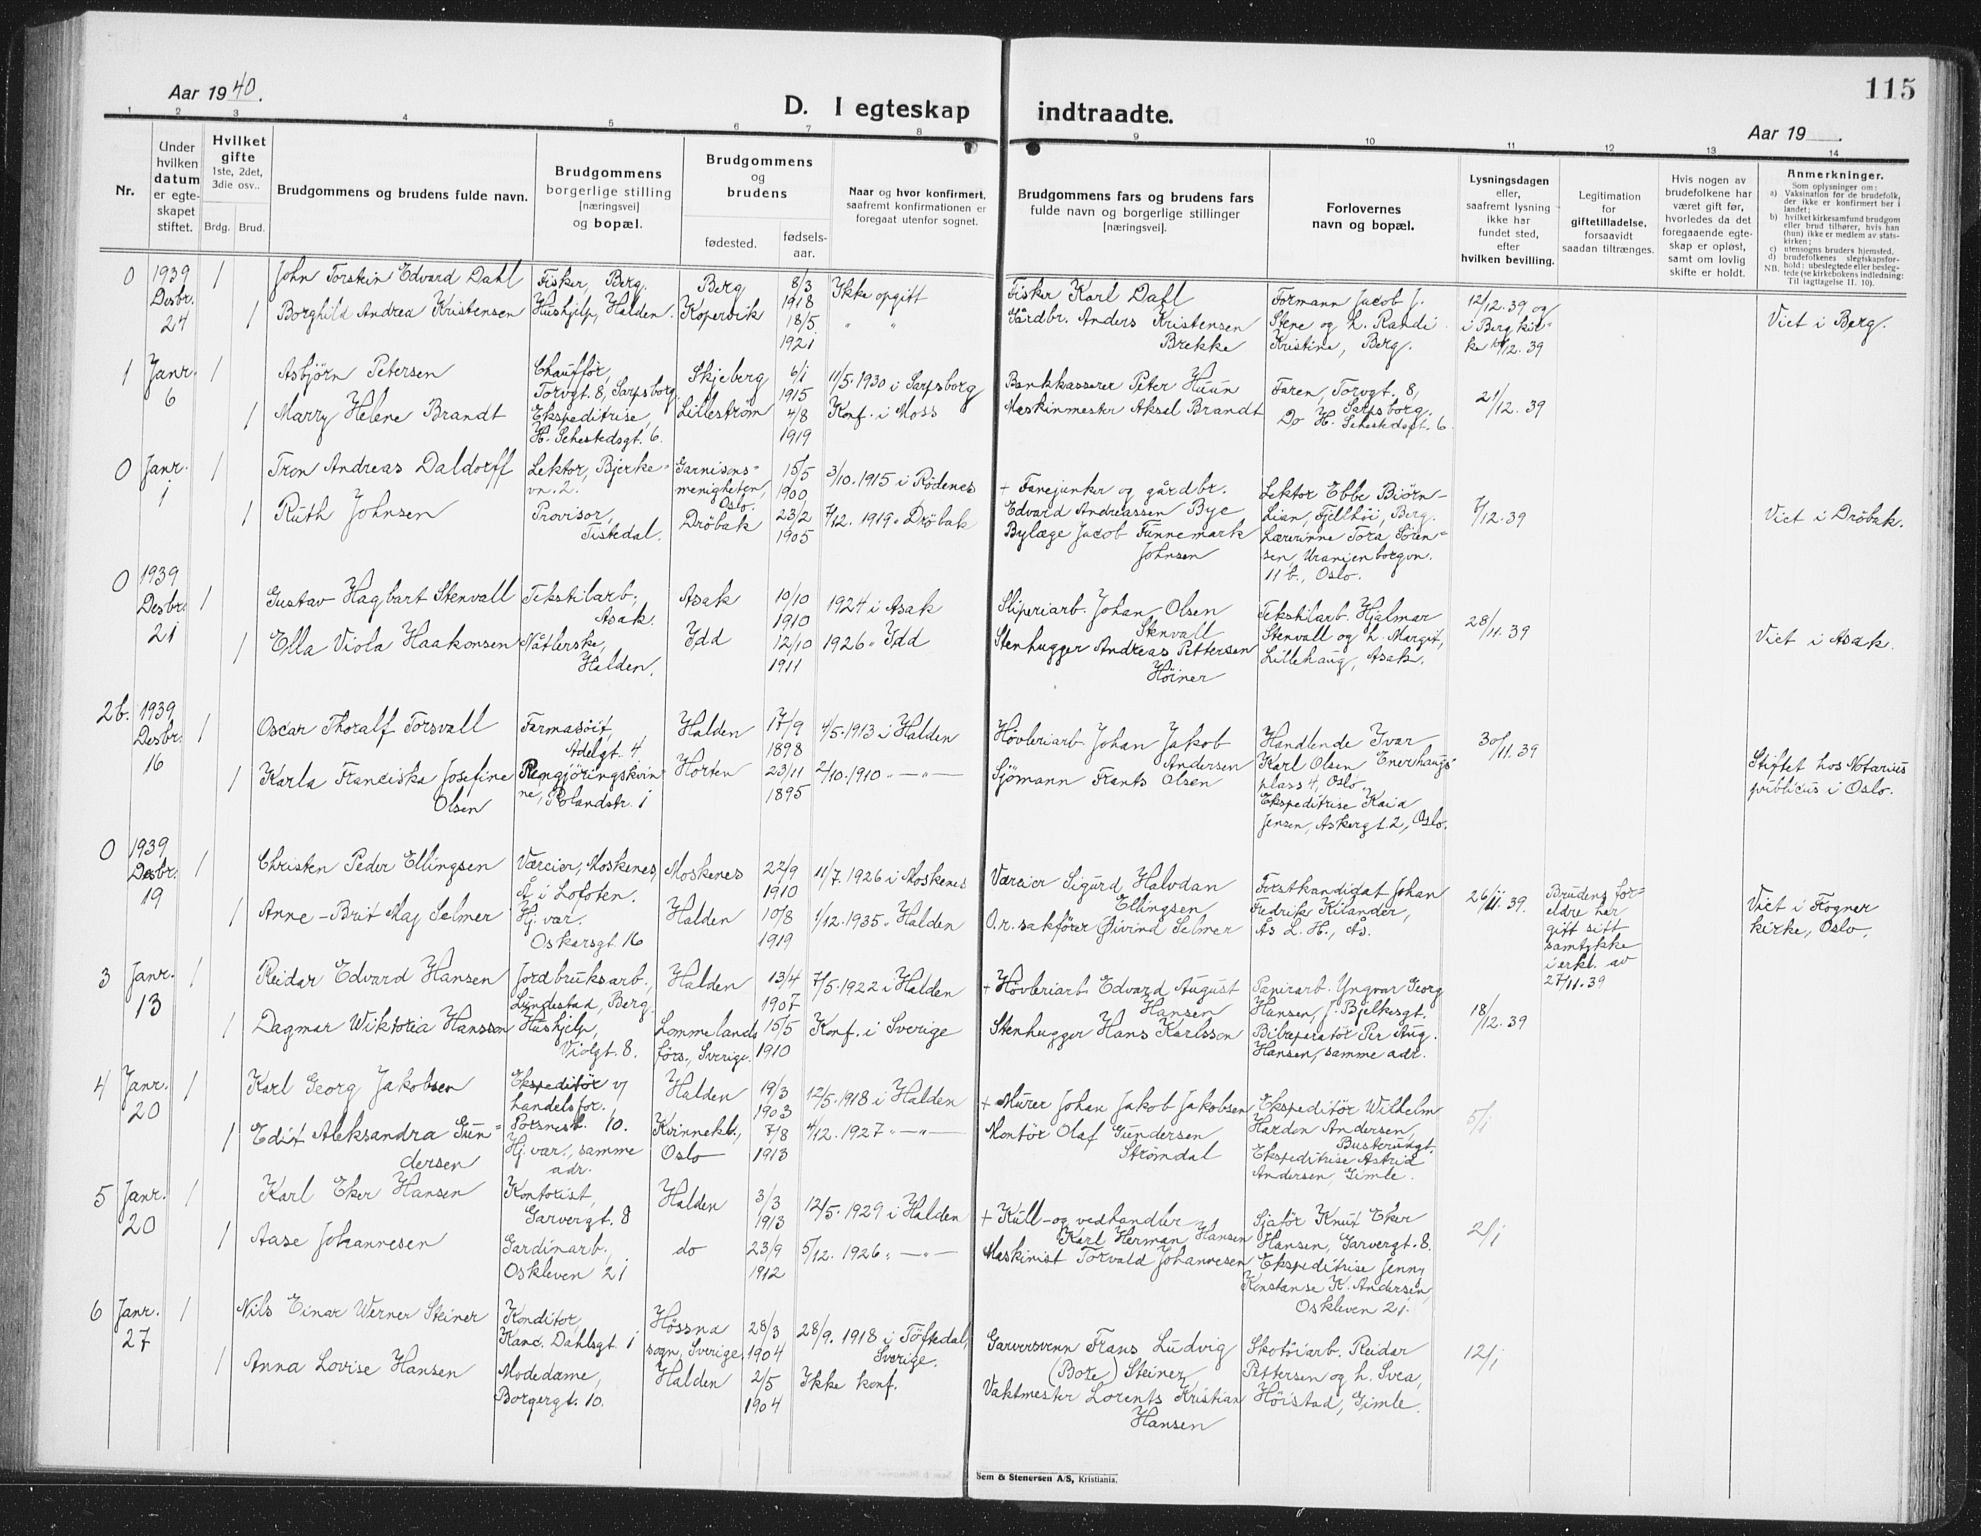 115
Aar 1940.
D. I egteskap indtraadte.
Aar 19
1 2 3 4 5 6 7 8 9 10 11 12 13 14
Nr.
Under hvilken datum er egteskapet stiftet.
Hvilket gifte
1ste, 2det, 3die osv..
Brdg. Brud.
Brudgommens og brudens fulde navn.
Brudgommens borgerlige stilling [næringsvei] og bopæl.
Brudgommens og brudens
fødested.
fødsels-aar.
Naar og hvor konfirmert, saafremt konfirmationen er foregaat utenfor sognet.
Brudgommens fars og brudens fars fulde navn og borgerlige stillinger [næringsvei].
Forlovernes navn og bopæl.
Lysningsdagen eller, saafremt lysning ikke har fundet sted, efter hvilken bevilling.
Legitimation for giftetilladelse, forsaavidt saadan tiltrænges.
Hvis nogen av brudefolkene har været gift før, hvorledes da det foregaaende egteskap er opløst, samt om lovlig skifte er holdt.
Anmerkninger.
Som oplysninger om:
a) Vaksination for de brudefolk, der ikke er konfirmert her i landet;
b) hvilket kirkesamfund brudgom eller brud tilhører, hvis han (hun) ikke er medlem av statskirken;
c) utensogns bruders hjemsted,
d) brudefolkenes slegtskapsforhold: ubeslegtede eller beslegtede (se kirkebokens indledning:
NB. Til iagttagelse II. 10).
0 1939 Desbr. 24 1 John Torstein Edvard Dahl Fisker, Berg. Berg 8/3 1918 Ikke opgitt Fisker Karl Dahl Formann Jacob J. Stene og h. Randi Kristine, Berg. 12/12.39 og i Berg kirke 10/12.39 Viet i Berg.
1 Borghild Andrea Kristensen Hushjelp, Halden. Kopervik 18/5 1921 " " Gårdbr. Anders Kristensen Brekke
1 Janr. 6 1 Asbjørn Petersen Chauffør, Torvgt. 8, Sarpsborg. Skjeberg 6/1 1915 11/5.1930 i Sarpsborg Bankkasserer Peter Huun Faren, Torvgt. 8, Sarpsborg. 21/12.39
1 Marry Helene Brandt Ekspeditrise, H. Sehestedsgt. 6. Lillestrøm 4/8 1919 Konf. i Moss Maskinmester Aksel Brandt Do H. Sehestedsgt. 6
0 Janr. 1 1 Tron Andreas Daldorff Lektor, Bjerkevn. 2. Garnisonsmenigheten, Oslo. 15/5 1900 3/10.1915 i Rødenes + Fanejunker og gårdbr. Edvard Andreassen Bye Lektor Ebbe Biørn-Lian, Fjellhøi, Berg. 7/12.39 Viet i Drøbak.
1 Ruth Johnsen Provisor, Tistedal. Drøbak 23/2 1905 7/12.1919 " Drøbak Bylæge Jacob Funnemark Johnsen Lærerinne Tora Sørensen, Uranienborgvn. 11 b., Oslo.
0 1939 Desbr. 21 1 Gustav Hagbart Stenvall Tekstilarb., Asak. Asak 10/10 1910 1924 i Asak Sliperiarb. Johan Olsen Stenvall Tekstilarb. Hjalmar Stenvall og h. Margit, Lillehaug, Asak. 28/11.39 Viet i Asak.
1 Ella Viola Haakonsen Nåtlerske, Halden. Idd 12/10 1911 1926 " Idd Stenhugger Andreas Pettersen Høiner
2b. 1939 Desbr. 16 1 Oscar Thoralf Torsvall Farmasøit, Adelgt. 4 Halden 17/9 1898 4/5.1913 i Halden Høvleriarb. Johan Jakob Andersen Handlende Ivar Karl Olsen Enerhaugsplass 4, Oslo. 30/11.39 Stiftet hos Notarius publicus i Oslo.
1 Karla Franciska Josefine Olsen Rengjøringskvinne, Rolandstr. 1 Horten 23/11 1895 2/10.1910 " — " — Sjømann Frants Olsen Ekspeditrise Kaia Jensen, Askergt. 2, Oslo.
0 1939 Desbr. 19 1 Christen Peder Ellingsen Væreier, Moskenes, Å i Lofoten. Moskenes 22/9 1910 11/7.1926 i Moskenes Væreier Sigurd Halvdan Ellingsen Forstkandidat Johan Fredrik Kilander, Ås L. H., Ås. 26/11.39. Brudens foreldre har gift sitt samtykke i erkl. av 27/11.39 Viet i Frogner kirke, Oslo.
1 Anne-Brit Maj Selmer Hj. vær. Oskarsgt. 16 Halden 10/8 1919 1/12.1935 " Halden O.r. sakfører Øivind Selmer
3 Janr. 13 1 Reidar Edvard Hansen Jordbruksarb., Lundestad, Berg. Halden 13/4 1907 7/5.1922 i Halden + Høvleriarb. Edvard August Hansen Papirarb. Yngvar Georg Hansen, J. Bjelkesgt. 18/12.39
1 Dagmar Wiktoria Hansson Hushjelp, Violgt. 8. Lommelands förs., Sverige. 15/5 1910 Konf. i Sverige Stenhugger Hans Karlsson Bilreparatør Per Aug. Hansen, samme adr.
4 Janr. 20 1 Karl Georg Jakobsen Ekspeditør v/ handelsfor. Porsnest. 10. Halden 19/3 1903 12/5.1918 i Halden + Murer Johan Jakob Jakobsen Ekspeditør Wilhelm Hardon Andersen, Busterudgt. 5/1
1 Edit Aleksandra Gundersen Hj. vær., samme adr. Kvinnekl., Oslo 7/8 1913 4/12.1927 " — " — Montør Olaf Gundersen Strømdal Ekspeditrise Astrid Andersen, Gimle.
5 Janr. 20 1 Karl Eker Hansen Kontorist, Garvergt. 8 Halden 3/3 1913 12/5.1929 i Halden + Kull- og vedhandler Karl Herman Hansen Sjafør Knut Eker Hansen, Garvergt. 8. 2/1
1 Aase Johannesen Gardinarb., Oskleven 21 do 23/9 1912 5/12.1926 " — " — Maskinist Torvald Johannesen Ekspeditrise Jenny Konstanse K. Andersen, Oskleven 21.
6 Janr. 27 1 Nils Einar Werner Steiner Konditor, Kand. Dahlsgt. 1 Hössna sogn, Sverige. 28/3 1904 28/9.1918 i Töftedal, Sverige. Garversvenn Frans Ludvig (Bote) Steiner Skotøiarb. Reidar Pettersen og h. Svea, Høistad, Gimle. 12/1
1 Anna Lovise Hansen Modedame, Borgergt. 10. Halden 2/5 1904 Ikke konf. Vaktmester Lorents Kristian Hansen
Sem & Stenersen A/S, Kristiania.